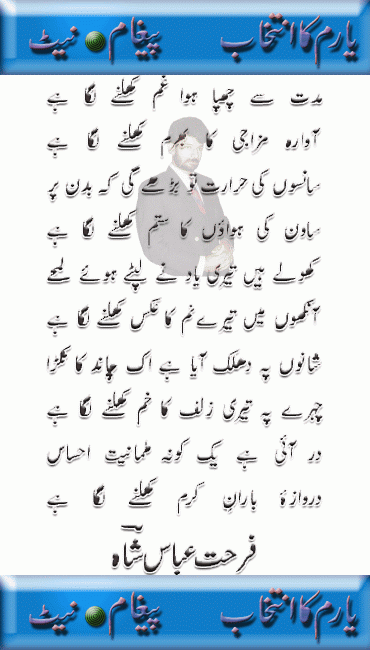 یارم کا انتخاب پیغام نیٹ
مدت سے چھپا ہوا غم کھلنے لگا ہے
آوارہ مزاجی کا بھرم کھلنے لگا ہے
سانسوں کی حرارت تو بڑھے گی کہ بدن پر
ساون کی ہواؤں کا ستم کھلنے لگا ہے
کھولے ہیں تیری یاد نے لپٹے ہوئے لمحے
آنکھوں میں تیرے نم کا عکس کھلنے لگا ہے
شانوں پہ ڈھلک آیا ہے اک چاند کا ٹکڑا
چہرے پہ تیری زلف کا خم کھلنے لگا ہے
در آئی ہے یک گونہ طمانیت احساس
دروازۂ باران کرم کھلنے لگا ہے
فرحت عباس شاہ
یارم کا انتخاب پیغام نیٹ